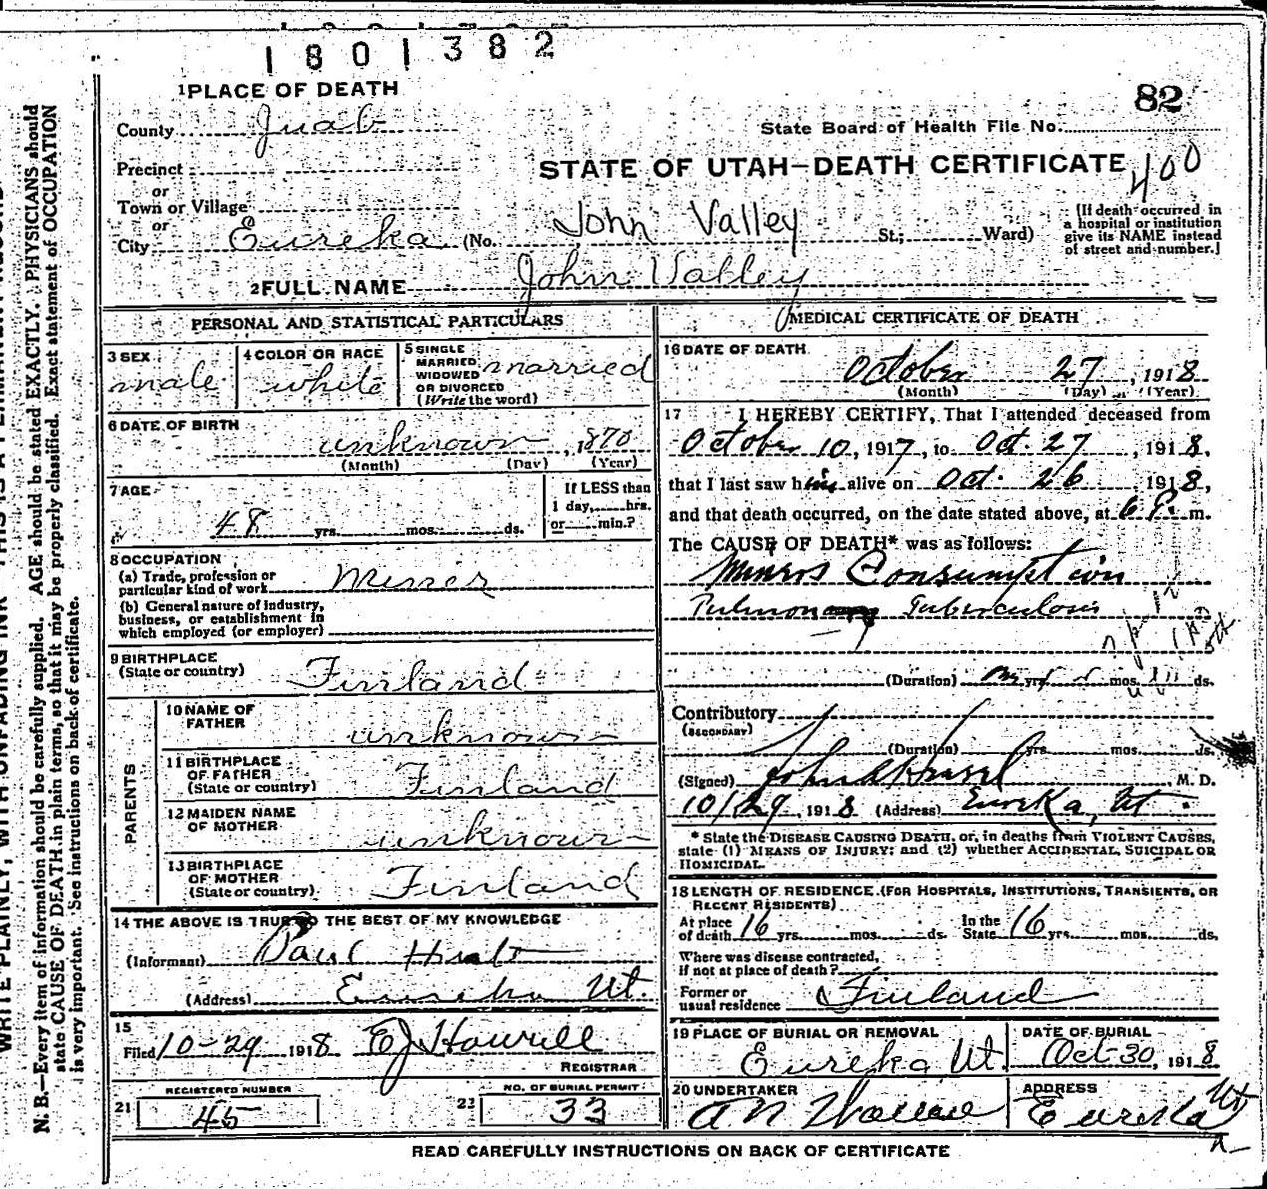 1801382
1 PLACE OF DEATH
82
County Juab
State Board of Health File No.
Precinct
STATE OF UTAH—DEATH CERTIFICATE
400
or
Town or Village
or
City Eureka (No. John Valley St.; Ward)
(If death occurred in
a hospital or institution
give its NAME instead
of street and number.)
2 FULL NAME John Valley
PERSONAL AND STATISTICAL PARTICULARS
3 SEX
male
4 COLOR OR RACE
white
5 SINGLE
MARRIED
WIDOWED
OR DIVORCED
(Write the word)
married
6 DATE OF BIRTH
unknown, 1870
(Month) (Day) (Year)
7 AGE
48 yrs. mos. ds.
If LESS than
1 day, hrs.
or min.?
8 OCCUPATION
(a) Trade, profession or
particular kind of work Miner
(b) General nature of industry,
business, or establishment in
which employed (or employer)
9 BIRTHPLACE
(State or country) Finland
PARENTS
10 NAME OF
FATHER unknown
11 BIRTHPLACE
OF FATHER
(State or country) Finland
12 MAIDEN NAME
OF MOTHER unknown
13 BIRTHPLACE
OF MOTHER
(State or country) Finland
14 THE ABOVE IS TRUE TO THE BEST OF MY KNOWLEDGE
(Informant) Paul
(Address) Eureka Ut.
15
Filed 10-29 1918 E J Howell
REGISTRAR
REGISTERED NUMBER
21 45
NO. OF BURIAL PERMIT
22 33
MEDICAL CERTIFICATE OF DEATH
16 DATE OF DEATH
October 27, 1918
(Month) (Day) (Year)
17 I HEREBY CERTIFY, That I attended deceased from
October 10, 1917, to Oct. 27, 1918,
that I last saw him alive on Oct. 26 1918,
and that death occurred, on the date stated above, at 6 P. m.
The CAUSE OF DEATH* was as follows:
Miners Consumption
Pulmonary Tuberculosis
(Duration) yrs. mos. ds.
Contributory
(SECONDARY)
(Duration) yrs. mos. ds.
(Signed) John M. D.
10/29, 1918 (Address) Eureka, Ut.
* State the DISEASE CAUSING DEATH, or, in deaths from VIOLENT CAUSES,
state (1) MEANS OF INJURY; and (2) whether ACCIDENTAL, SUICIDAL OR
HOMICIDAL.
18 LENGTH OF RESIDENCE (FOR HOSPITALS, INSTITUTIONS, TRANSIENTS, OR
RECENT RESIDENTS)
At place
of death 16 yrs. mos. ds.
In the
State 16 yrs. mos. ds.
Where was disease contracted,
if not at place of death?
Former or
usual residence Finland
19 PLACE OF BURIAL OR REMOVAL
Eureka Ut.
DATE OF BURIAL
Oct-30, 1918
20 UNDERTAKER
A N Wallace
ADDRESS
Eureka Ut
READ CAREFULLY INSTRUCTIONS ON BACK OF CERTIFICATE
N. B.—Every item of information should be carefully supplied. AGE should be stated EXACTLY. PHYSICIANS should
state CAUSE OF DEATH in plain terms, so that it may be properly classified. Exact statement of OCCUPATION
is very important. See instructions on back of certificate.